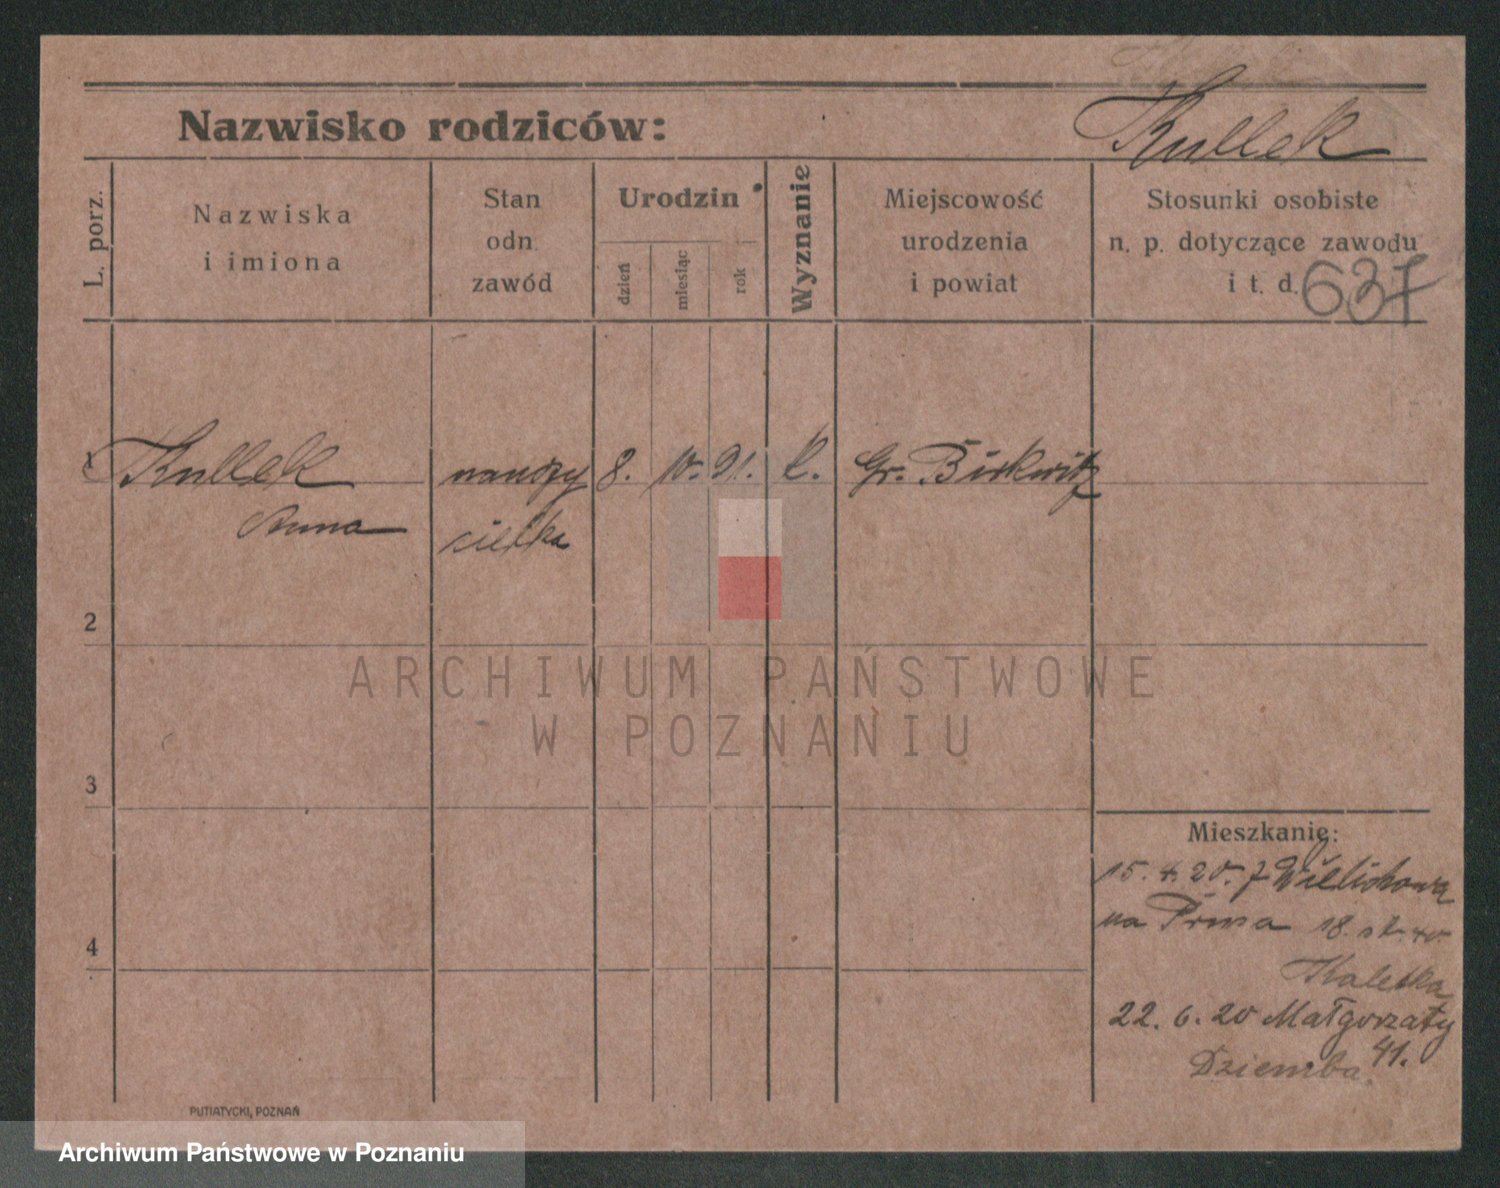 Nazwisko rodziców: Kullek
L. porz.
Nazwiska
i imiona
Stan
odn.
zawód
Urodzin
dzień
miesiąc
rok
Wyznanie
Miejscowość
urodzenia
i powiat
Stosunki osobiste
n. p. dotyczące zawodu
i t. d.
637
1 Kullek nauczy 8. 10. 91. k. Gr. Birkwitz
Anna cielka
2
ARCHIWUM PAŃSTWOWE
W POZNANIU
3
4
Mieszkanie:
15. 4. 20. z Wielichowa
na 18. 40.
Kaletka
22. 6. 20 Małgorzaty
Dziemba 41.
PUTIATYCKI, POZNAŃ
Archiwum Państwowe w Poznaniu